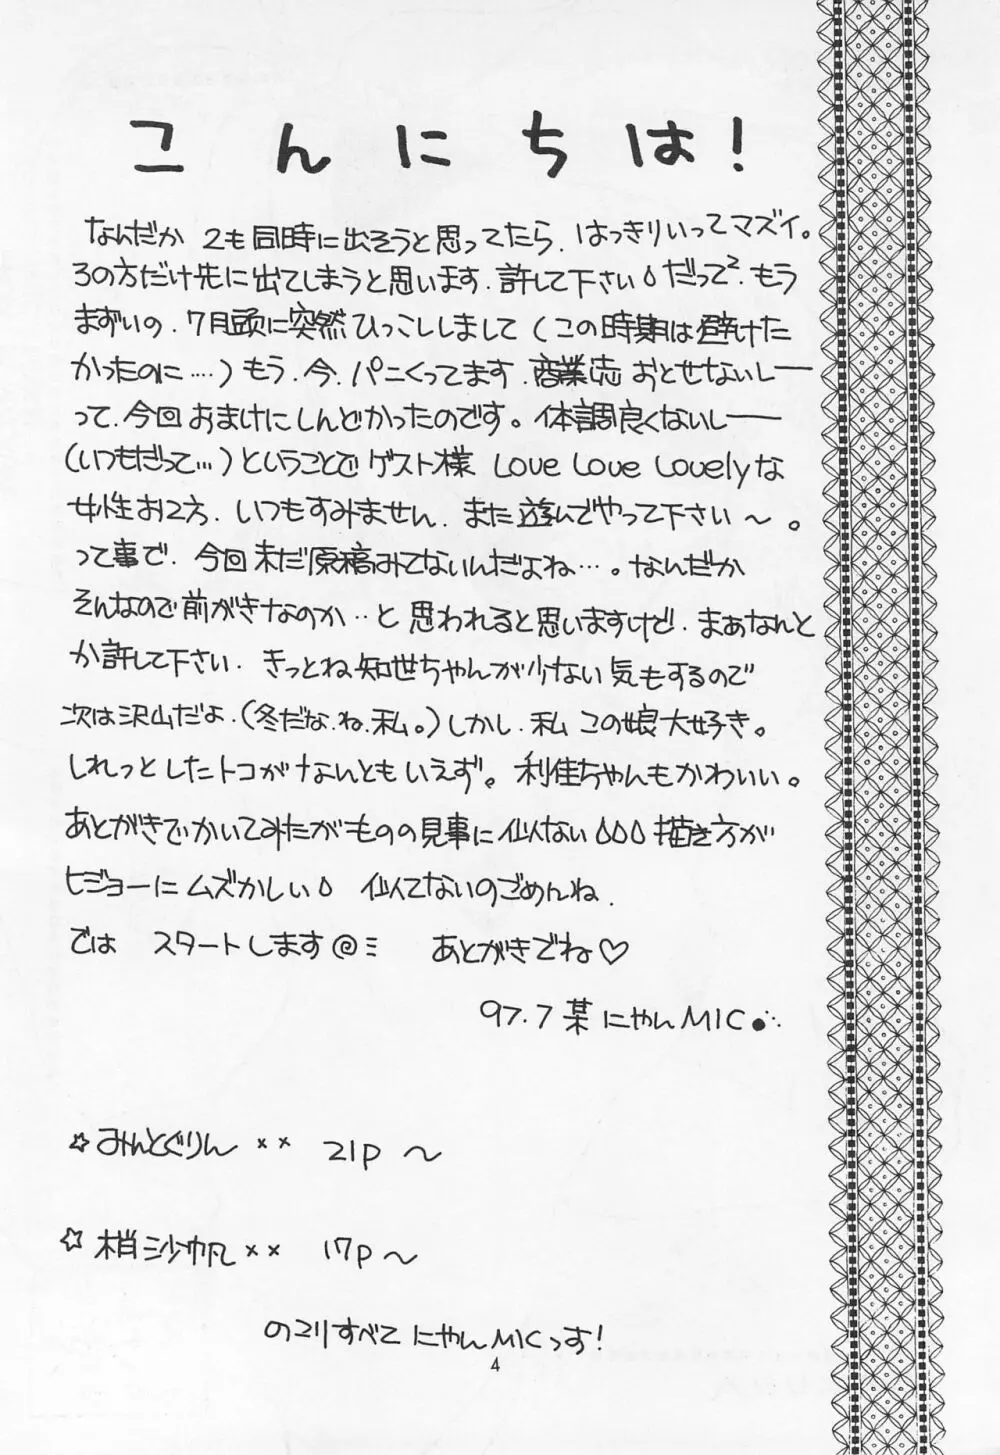 こんにちは!
なんだか 2も同時に出そうと思ってたら、はっきりいってマズイ。
3の方だけ先に出てしまうと思います、許して下さい だって²、もう
まずいの、7月頭に突然ひっこししまして(この時期は避けた
かったのに‥‥)もう、今、パニくってます、商業誌おとせないしー
って、今回おまけにしんどかったのです。体調良くないしー
(いつもだって…)ということでゲスト様 Love Love Lovelyな
女性お2方、いつもすみません、また遊んでやって下さい〜。
って事で、今回未だ原稿みてないんだよね…。なんだか
そんなので前がきなのか‥と思われると思いますけど、まあなんと
か許して下さい、きっとね知世ちゃんが少ない気もするので
次は沢山だよ、(冬だな、ね、私。)しかし、私 この娘大好き。
しれっとしたトコがなんともいえず。利佳ちゃんもかわいい。
あとがきでかいてみたがものの見事に似ない 描き方が
ヒジョーにムズかしい 似てないのごめんね、
では スタートします@ミ あとがきでね♡
97.7 某にゃんMIC
☆みんとぐりん ×× 21p 〜
☆梢沙帆 ×× 17p 〜
のこりすべて にゃんMICっす!
4